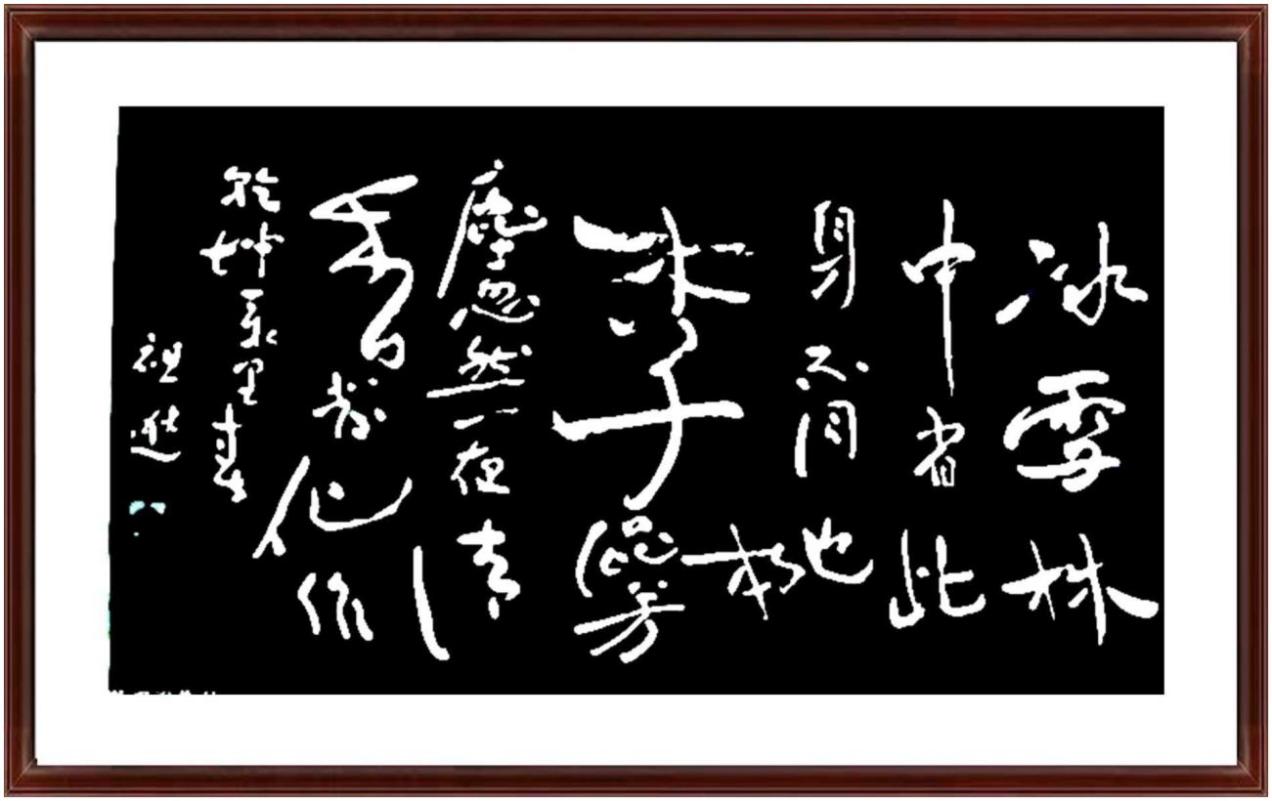 冰雪林
中著此
身不同桃
李混芳
塵忽然一夜清
香發化作
乾坤萬里春
祖